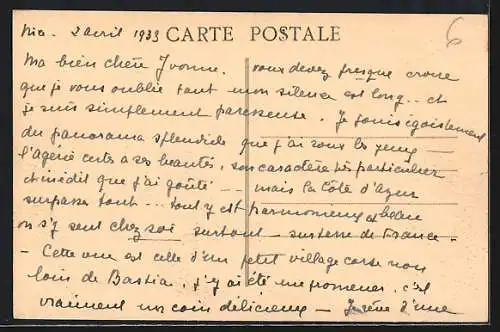 Nice. 2 avril 1933 CARTE POSTALE
6
Ma bien chère Yvonne. vous devez presque croire
que je vous oublie tant mon silence est long.. et
je suis simplement paresseuse. Je jouis égoistement
du panorama splendide que j'ai sous les yeux —
l'Algérie certes a ses beautés, son caractère très particulier
et inédit que j'ai goûté -- mais la Côte d'Azur
surpasse tout... tout y est harmonieux et beau
on s'y sent chez soi surtout — sur terre de France -
- Cette vue est celle d'un petit village corse non
loin de Bastia, j'y ai été me promener, c'est
vraiment un coin délicieux — Je rêve d'une